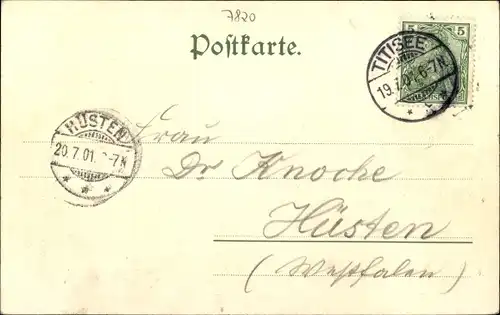 7820
Postkarte.
5 5
TITISEE
19.7.01. 6-7N.
HÜSTEN
20.7.01. -7N
Frau
Dr Knoche
Hüsten
(Westfalen)